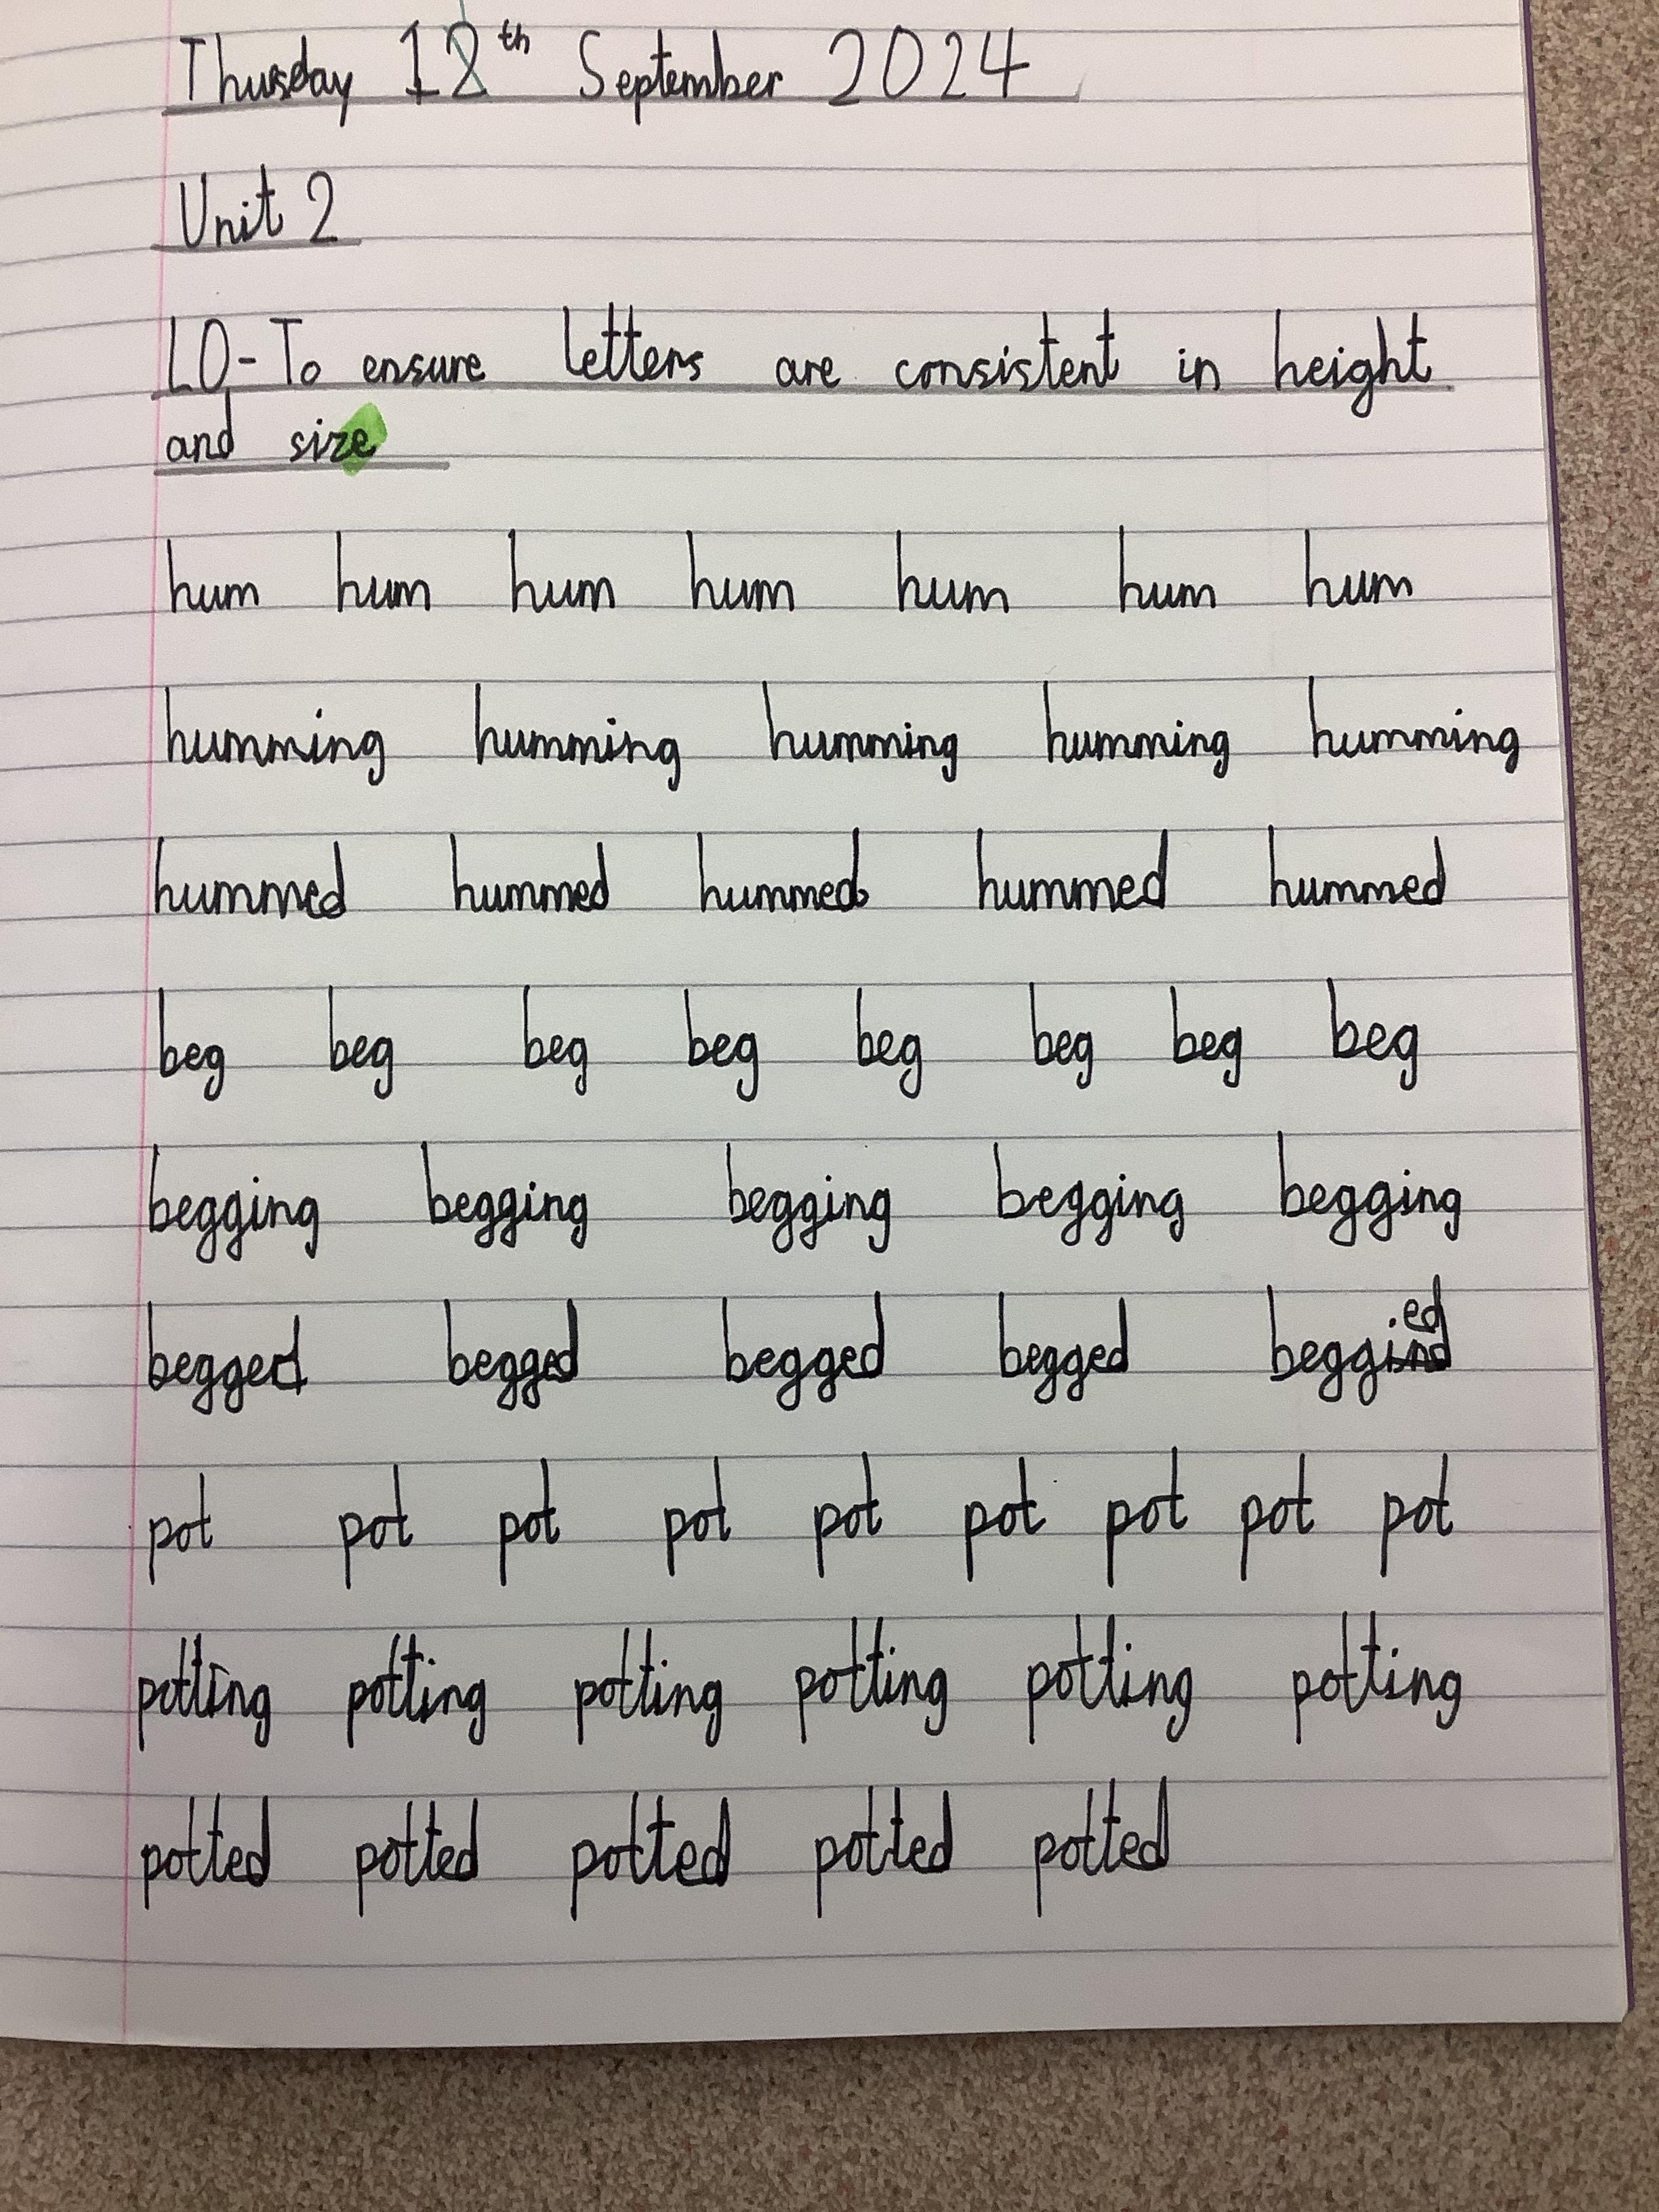 Thursday 12th September 2024
Unit 2
LO-To ensure letters are consistent in height
and size
hum hum hum hum hum hum hum
humming humming humming humming humming
hummed hummed hummed hummed hummed
beg beg beg beg beg beg beg beg
begging begging begging begging begging
begged begged begged begged begged
pot pot pot pot pot pot pot pot pot
potting potting potting potting potting potting
potted potted potted potted potted